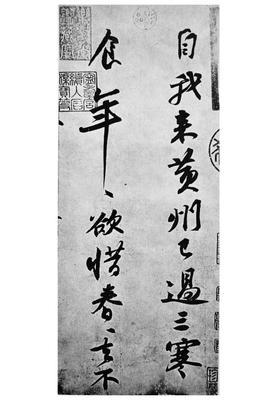 自我来黄州已過三寒
食年〻欲惜春〻去不